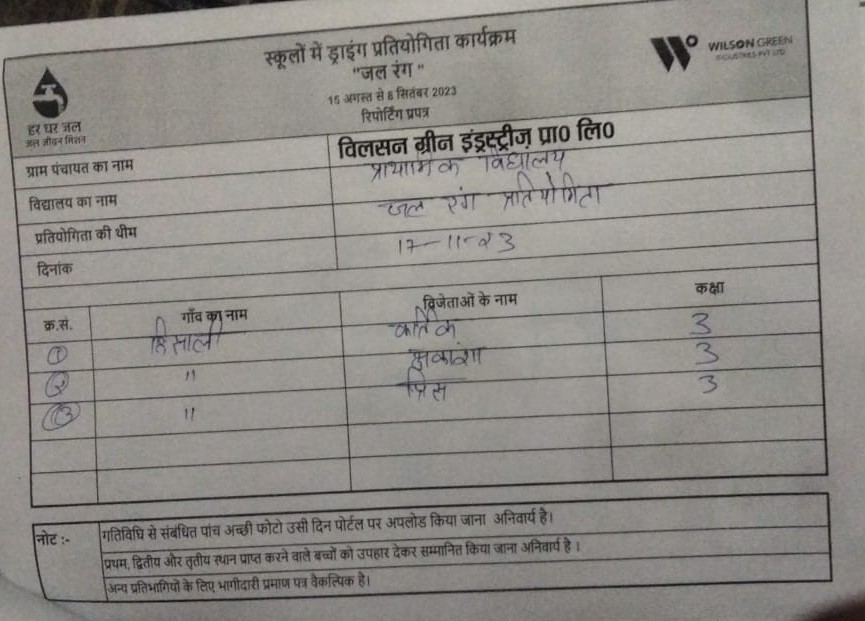 स्कूलों में ड्राइंग प्रतियोगिता कार्यक्रम
"जल रंग "
15 अगस्त से 8 सितंबर 2023
रिपोर्टिंग प्रपत्र
हर घर जल
जल जीवन मिशन
WILSON GREEN
INDUSTRIES PVT LTD
विलसन ग्रीन इंड्रस्ट्रीज़ प्रा0 लि0
ग्राम पंचायत का नाम
प्राथमिक विद्यालय
विद्यालय का नाम
जल रंग प्रतियोगिता
प्रतियोगिता की थीम
17-11-23
दिनांक
क्र.सं. गाँव का नाम विजेताओं के नाम कक्षा
1 हिसाली कार्तिक 3
2 " 3
3 " प्रिंस 3
नोट :- गतिविधि से संबंधित पांच अच्छी फोटो उसी दिन पोर्टल पर अपलोड किया जाना अनिवार्य है।
प्रथम, द्वितीय और तृतीय स्थान प्राप्त करने वाले बच्चों को उपहार देकर सम्मानित किया जाना अनिवार्य है ।
अन्य प्रतिभागियों के लिए भागीदारी प्रमाण पत्र वैकल्पिक है।